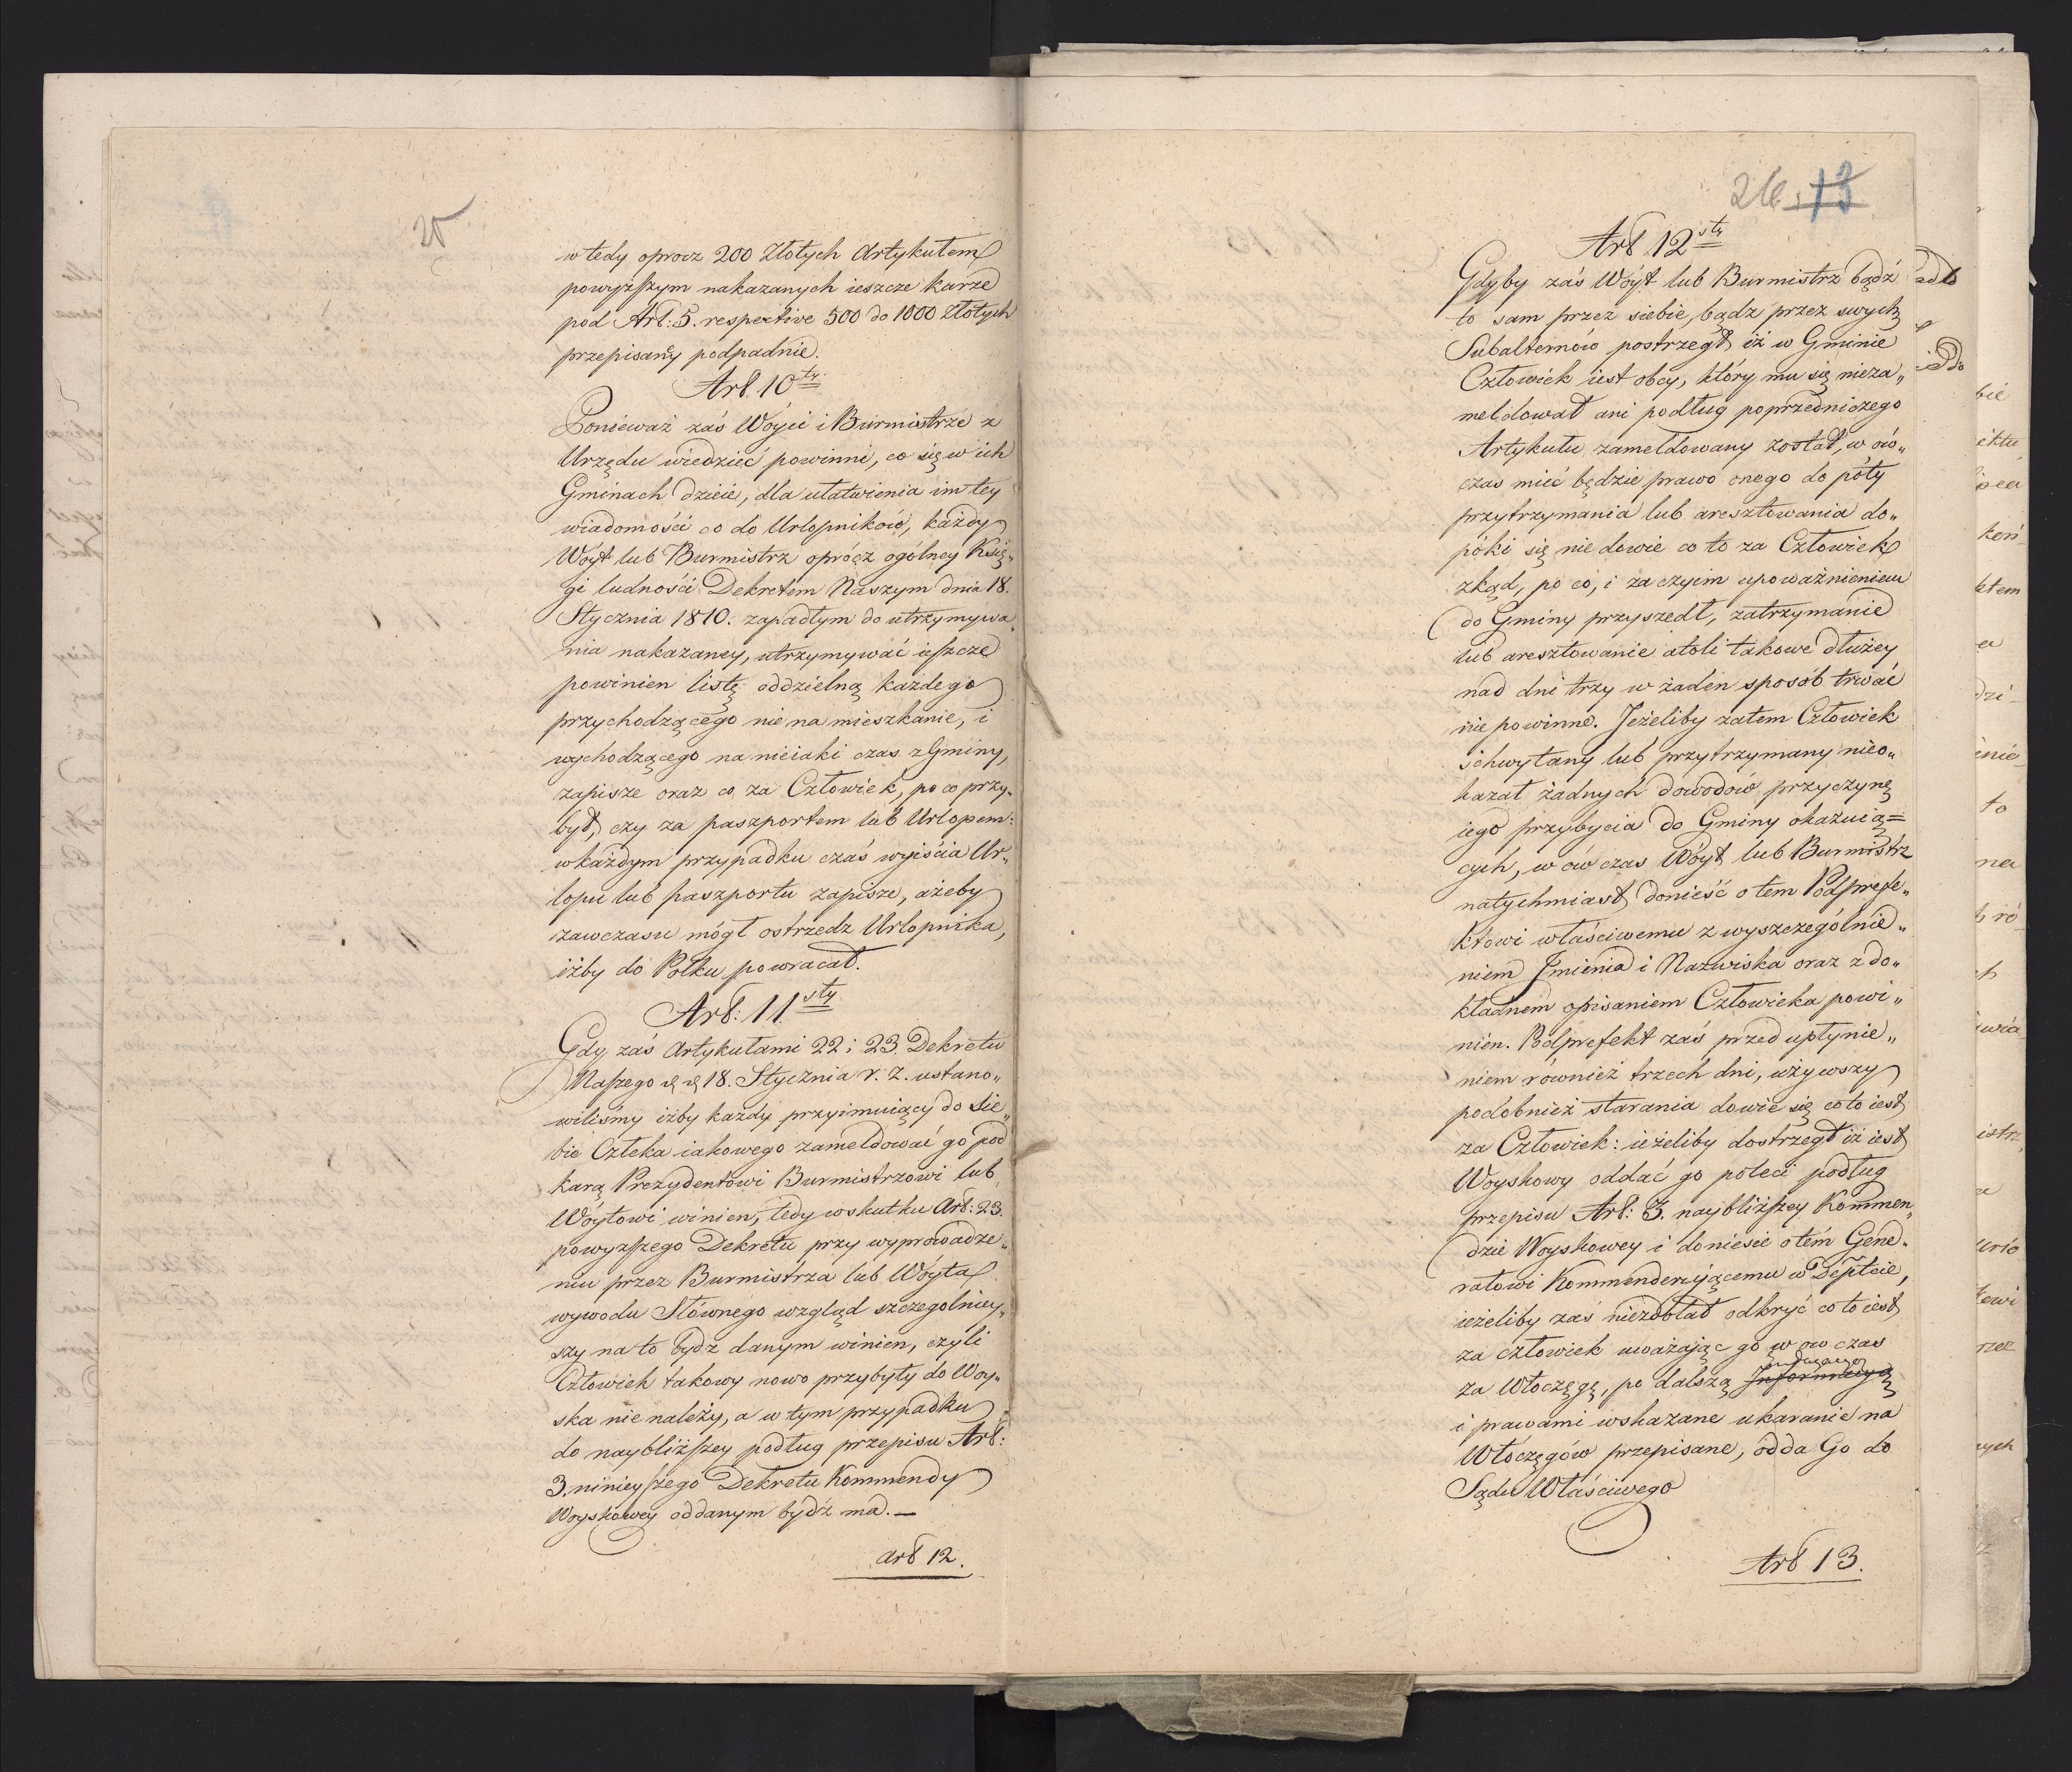 25
wtedy oprocz 200 Złotych Artykułem
powyższym nakazanych ieszcze karze
pod Art: 5. respective 500 do 1000 Złotych
przepisaney podpadnie.
Art. 10ty
Ponieważ zaś Wóyci i Burmistrze z
Urzędu wiedzieć powinni, co się w ich
Gminach dzieie, dla ułatwienia im tey
wiadomości co do Urlopników, każdy
Wóyt lub Burmistrz oprócz ogólney Księ„
gi ludności Dekretem Naszym dnia 18.
Stycznia 1810. zapadłym do utrzymywa„
nia nakazaney, utrzymywać ieszcze
powinien listę oddzielną każdego
przychodzącego nie na mieszkanie, i
wychodzącego na nieiaki czas z Gminy,
zapisze oraz co za Człowiek, po co przy„
był, czy za paszportem lub Urlopem:
w każdym przypadku czas wyiścia Ur„
lopu lub paszportu zapisze, ażeby
zawczasu mógł ostrzedz Urlopnika,
iżby do Połku powracał.
Art: 11sty
Gdy zaś Artykułami 22 i 23. Dekretu
Naszego 18. Stycznia r. z. ustano„
wiliśmy iżby każdy przyimuiący do sie„
bie Człeka iakowego zameldować go pod
karą Prezydentowi Burmistrzowi lub
Wóytowi winien, tedy wskutku Art: 23.
powyższego Dekretu przy wyprowadze„
niu przez Burmistrza lub Wóyta
wywodu Słównego wzgląd szczegolniey„
szy na to bydz danym winien, czyli
Człowiek takowy nowo przybyły do Woy„
ska nie należy, a w tym przypadku
do naybliższey podług przepisu Art:
3. ninieyszego Dekretu Kommendy
Woyskowey oddanym bydź ma. —
Art 12.
26. 13
Art 12sty
Gdyby zaś Wóyt lub Burmistrz bądź
to sam przez siebie, bądz przez swych
Subalternów postrzegł, iż w Gminie
Człowiek iest obcy, który mu się nieza„
meldował ani podług poprzedniczego
Artykułu zameldowany został, w ów„
czas mieć będzie prawo onego do póty
przytrzymania lub aresztowania do„
póki się nie dowie co to za Człowiek
zkąd, po co, i za czyim upoważnieniem
do Gminy przyszedł, zatrzymanie
lub aresztowanie atoli takowe dłużey
nad dni trzy w żaden sposób trwać
nie powinne. Jeżeliby zatem Człowiek
schwytany lub przytrzymany nieo„
kazał żadnych dowodów przyczynę
iego przybycia do Gminy okazuią=
cych, w ów czas Wóyt lub Burmistrz
natychmiast donieść o tem Podprefe„
ktowi właściwemu z wyszczególnie„
niem Jmienia i Nazwiska oraz z do„
kładnem opisaniem Człowieka powi„
nien. Podprefekt zaś przed upłynie„
niem również trzech dni, używszy
podobnież starania dowie się co to iest
za Człowiek: ieżeliby dostrzegł iż iest
Woyskowy oddać go poleci podług
przepisu Art: 3. naybliższey Kommen„
dzie Woyskowey i doniesie o tém Gene„
rałowi Kommenderuiącemu w Deptcie,
ieżeliby zaś niezdołał odkryć co to iest
za człowiek uważając go w ów czas
za Włoczęgę, po dalszą Informacyą
i prawami wskazane ukaranie na
Włóczęgów przepisane, odda Go do
Sądu Właściwego
Art 13.